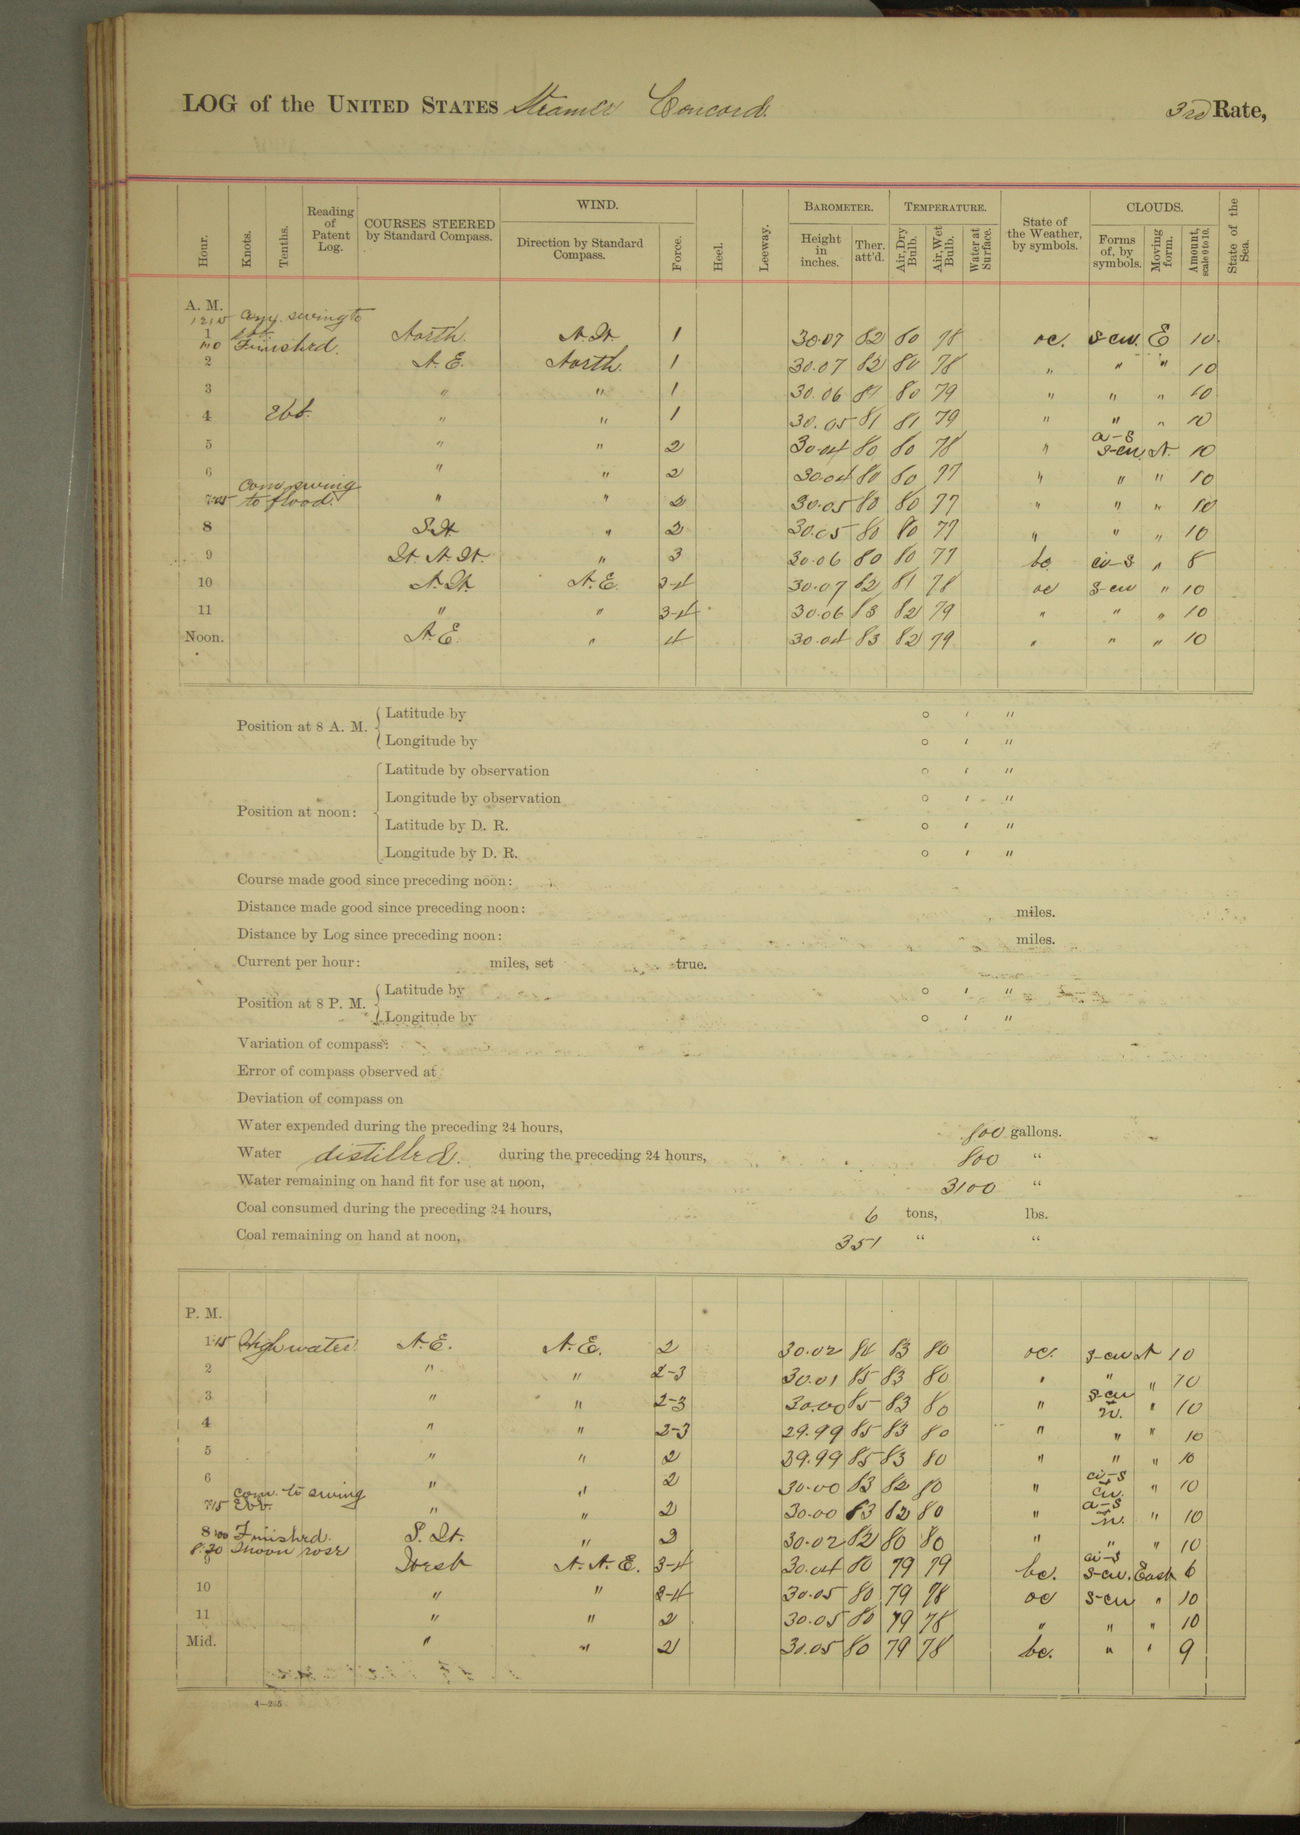 LOG of the UNITED STATES Steamer Concord. 3rd Rate,
Hour. Knots. Tenths. Reading of Patent Log. COURSES STEERED by Standard Compass. WIND. Direction by Standard Compass. Force. Heel. Leeway. BAROMETER. Height in inches. Ther. att'd. TEMPERATURE. Air, Dry Bulb. Air, Wet Bulb. Water at Surface. State of the Weather, by symbols. CLOUDS. Forms of, by symbols. Moving form. Amount, scale 0 to 10. State of the Sea.
A. M.
1215 swing to
1 North N.W. 1 30.07 82 80 78 oc. s-cu. E 10
Finished.
2 N.E. North 1 30.07 82 80 78 " " " 10
3 " " 1 30.06 81 80 79 " " " 10
4 Ebb. " " 1 30.05 81 81 79 " " " 10
5 " " 2 30.04 80 80 78 " a-s s-cu N. 10
6 " " 2 30.04 80 80 77 " " " 10
com. swing
745 to flood. " " 2 30.05 80 80 77 " " " 10
8 S.W. " 2 30.05 80 80 77 " " " 10
9 W.N.W. " 3 30.06 80 80 77 bc ci-s " 8
10 N.W. N.E. 3-4 30.07 82 81 78 oc s-cu " 10
11 " " 3-4 30.06 83 82 79 " " " 10
Noon. N.E. " 4 30.04 83 82 79 " " " 10
Position at 8 A. M. Latitude by ° ′ ″
Longitude by ° ′ ″
Position at noon: Latitude by observation ° ′ ″
Longitude by observation ° ′ ″
Latitude by D. R. ° ′ ″
Longitude by D. R. ° ′ ″
Course made good since preceding noon:
Distance made good since preceding noon: miles.
Distance by Log since preceding noon: miles.
Current per hour: miles, set true.
Position at 8 P. M. Latitude by ° ′ ″
Longitude by ° ′ ″
Variation of compass:
Error of compass observed at
Deviation of compass on
Water expended during the preceding 24 hours, 800 gallons.
Water distilled. during the preceding 24 hours, 800 "
Water remaining on hand fit for use at noon, 3100 "
Coal consumed during the preceding 24 hours, 6 tons, lbs.
Coal remaining on hand at noon, 351 " "
P. M.
1 15 High water N.E. N.E. 2 30.02 83 80 oc. s-cu N 10
2 " " 2-3 30.01 85 83 80 " " " 10
3 " " 2-3 30.00 85 83 80 " s-cu n. " 10
4 " " 2-3 29.99 85 83 80 " " " 10
5 " " 2 29.99 85 83 80 " " " 10
6 " " 2 30.00 83 82 80 " ci-s cu. " 10
com. to swing
715 Ebb. " " 2 30.00 83 82 80 " a-s n. " 10
8 00 Finished. S.W. " 2 30.02 82 80 80 " " " 10
8.20 Moon rose
9 West N.N.E. 3-4 30.04 80 79 79 bc. ci-s s-cu. East 6
10 " " 3-4 30.05 80 79 78 oc s-cu " 10
11 " " 2 30.05 80 79 78 " " " 10
Mid. " " 2 30.05 80 79 78 bc. " " 9